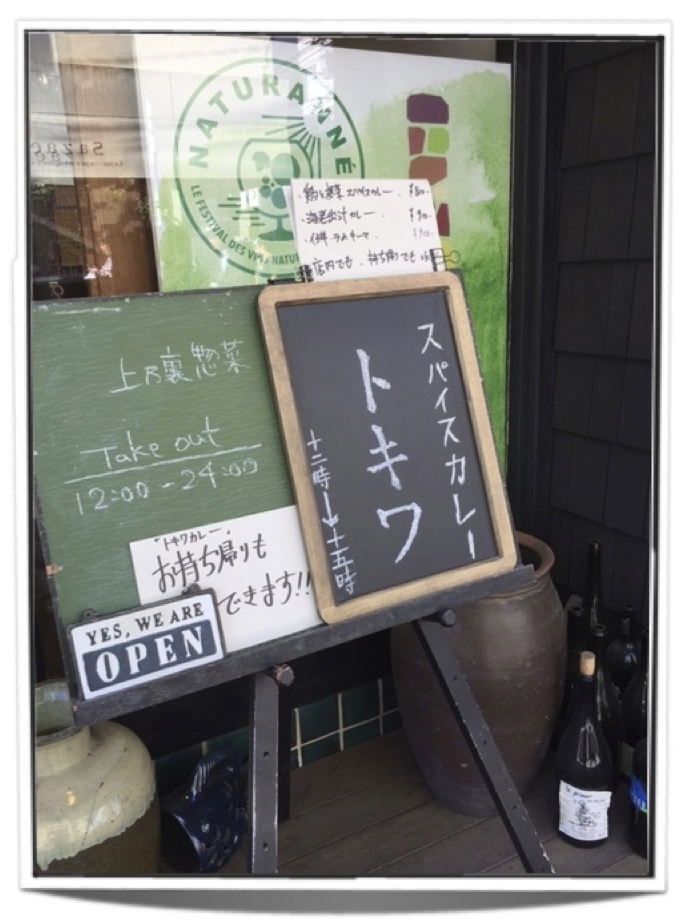 NATURANNÉ
LE FESTIVAL DES VINS NATUR
・鶏と根菜スパイスカレー. ¥800-
・海老出汁カレー. ¥900-
ラムキーマ. ¥900-
店内でも、持ち帰りでも
スパイスカレー
トキワ
十二時→十五時
上乃裏惣菜
Take out
12:00-24:00
"トキワカレー"
お持ち帰りも
できます!!
YES, WE ARE
OPEN